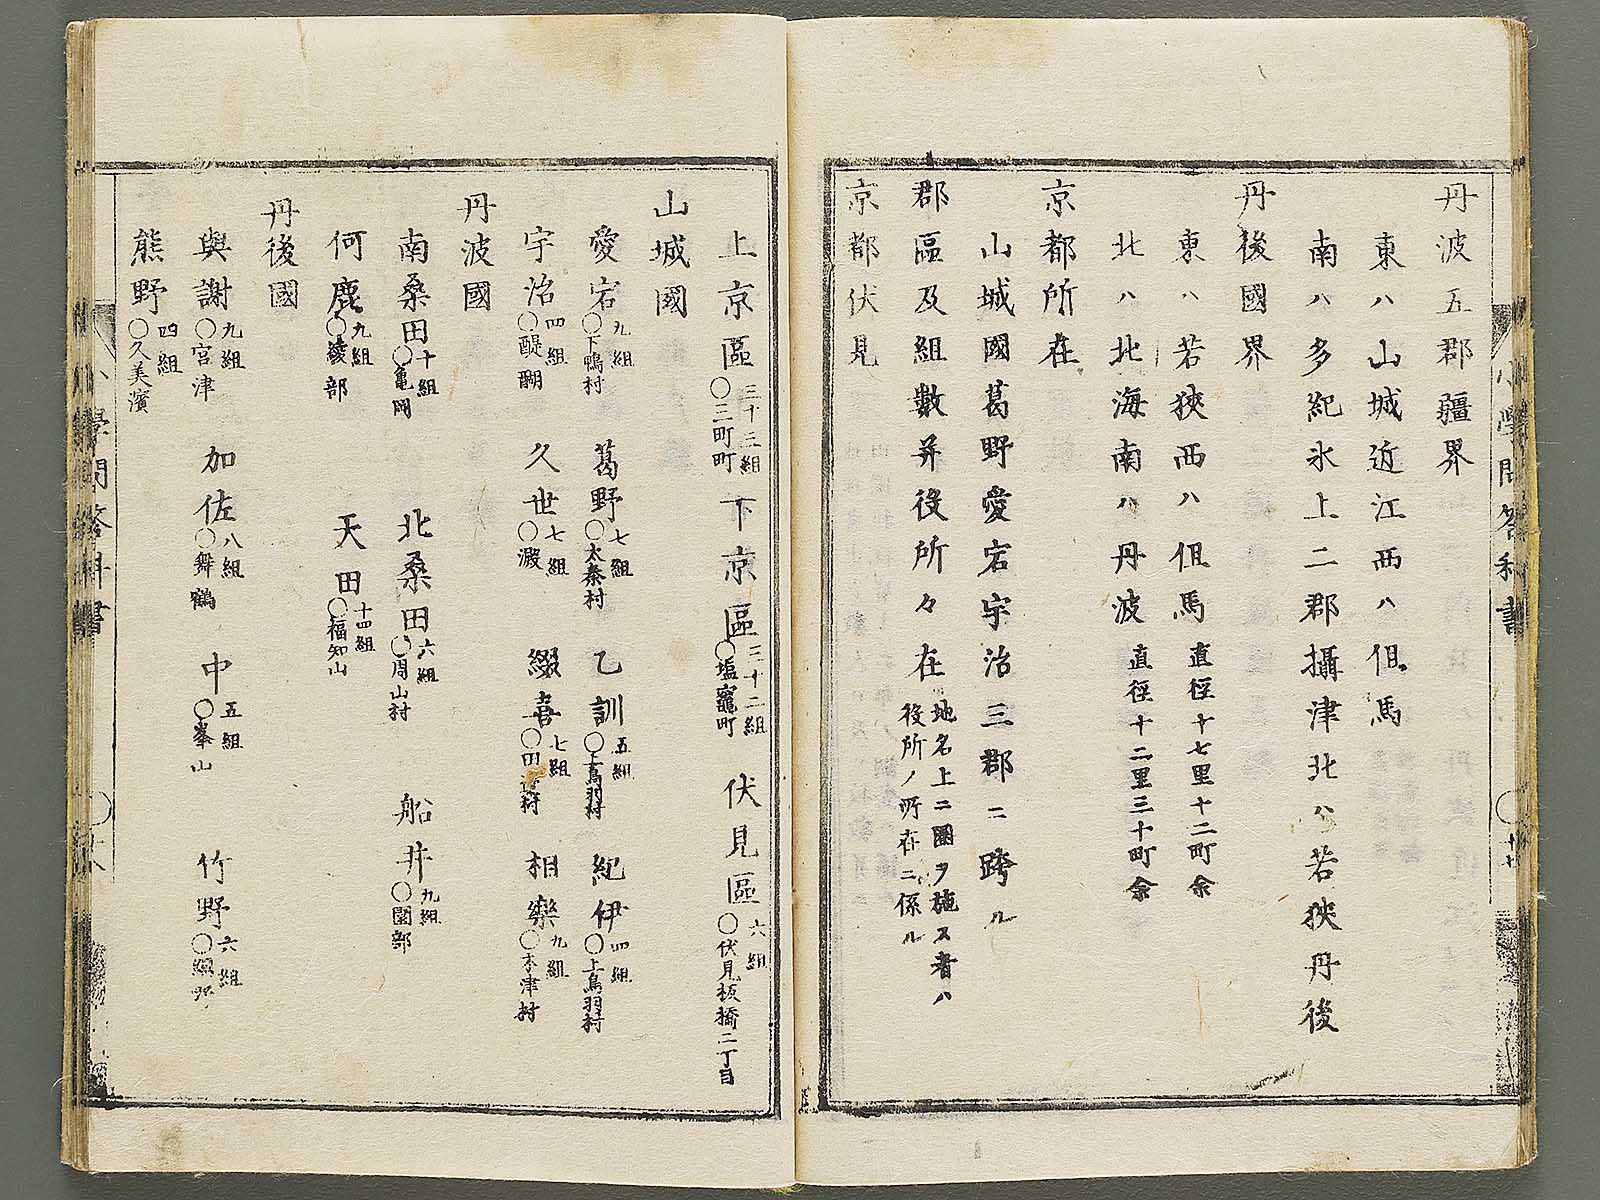 丹波五郡疆界
東ハ山城近江西ハ伹馬
南ハ多紀氷上二郡攝津北ハ若狹丹後
丹後國界
東ハ若狹西ハ伹馬 直徑十七里十二町余
北ハ北海南ハ丹波 直徑十二里三十町余
京都所在
山城國葛野愛宕宇治三郡ニ跨ル
郡區及組數并役所々在 地名上ニ圈ヲ施ス者ハ
役所ノ所在ニ係ル
京都伏見
上京區 三十三組 〇三町町 下京區 三十二組 〇塩竈町 伏見區 六組 〇伏見板橋二丁目
山城國
愛宕 九組 〇下鴨村 葛野 七組 〇太秦村 乙訓 五組 〇上鳥羽村 紀伊 四組 〇上鳥羽村
宇治 四組 〇醍醐 久世 七組 〇澱 綴喜 七組 〇田邊村 相樂 九組 〇木津村
丹波國
南桑田 十組 〇亀岡 北桑田 六組 〇周山村 船井 九組 〇園部
何鹿 九組 〇綾部 天田 十四組 〇福知山
丹後國
與謝 九組 〇宮津 加佐 八組 〇舞鶴 中 五組 〇峯山 竹野 六組 〇網野
熊野 四組 〇久美濱
小學問答科書